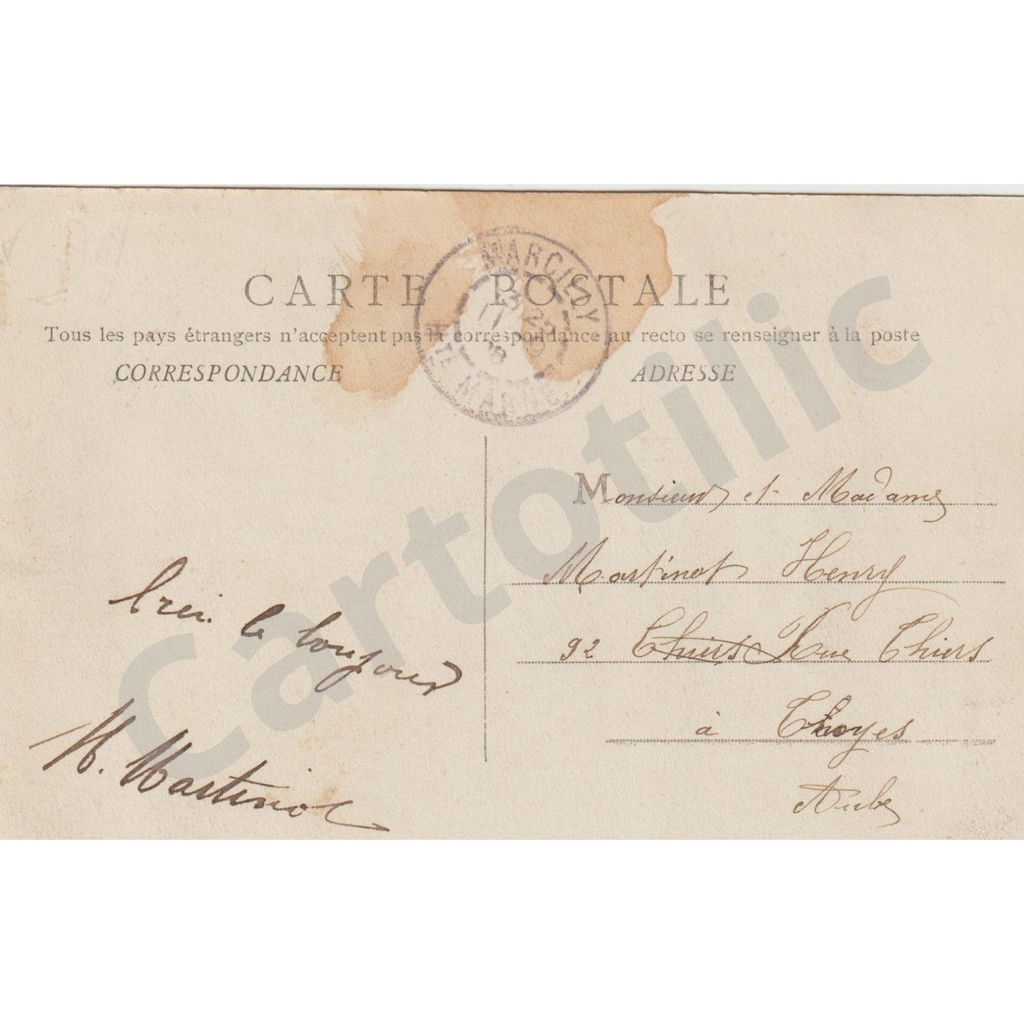 CARTE POSTALE
Tous les pays étrangers n'acceptent pas la correspondance au recto se renseigner à la poste
CORRESPONDANCE
ADRESSE
MARCILLY
22
HTE MARNE
Monsieur et Madame
Martinot Henry
92 Thiers Rue Thiers
à Troyes
Aube
le toujours
H. Martinot
Cartotilic